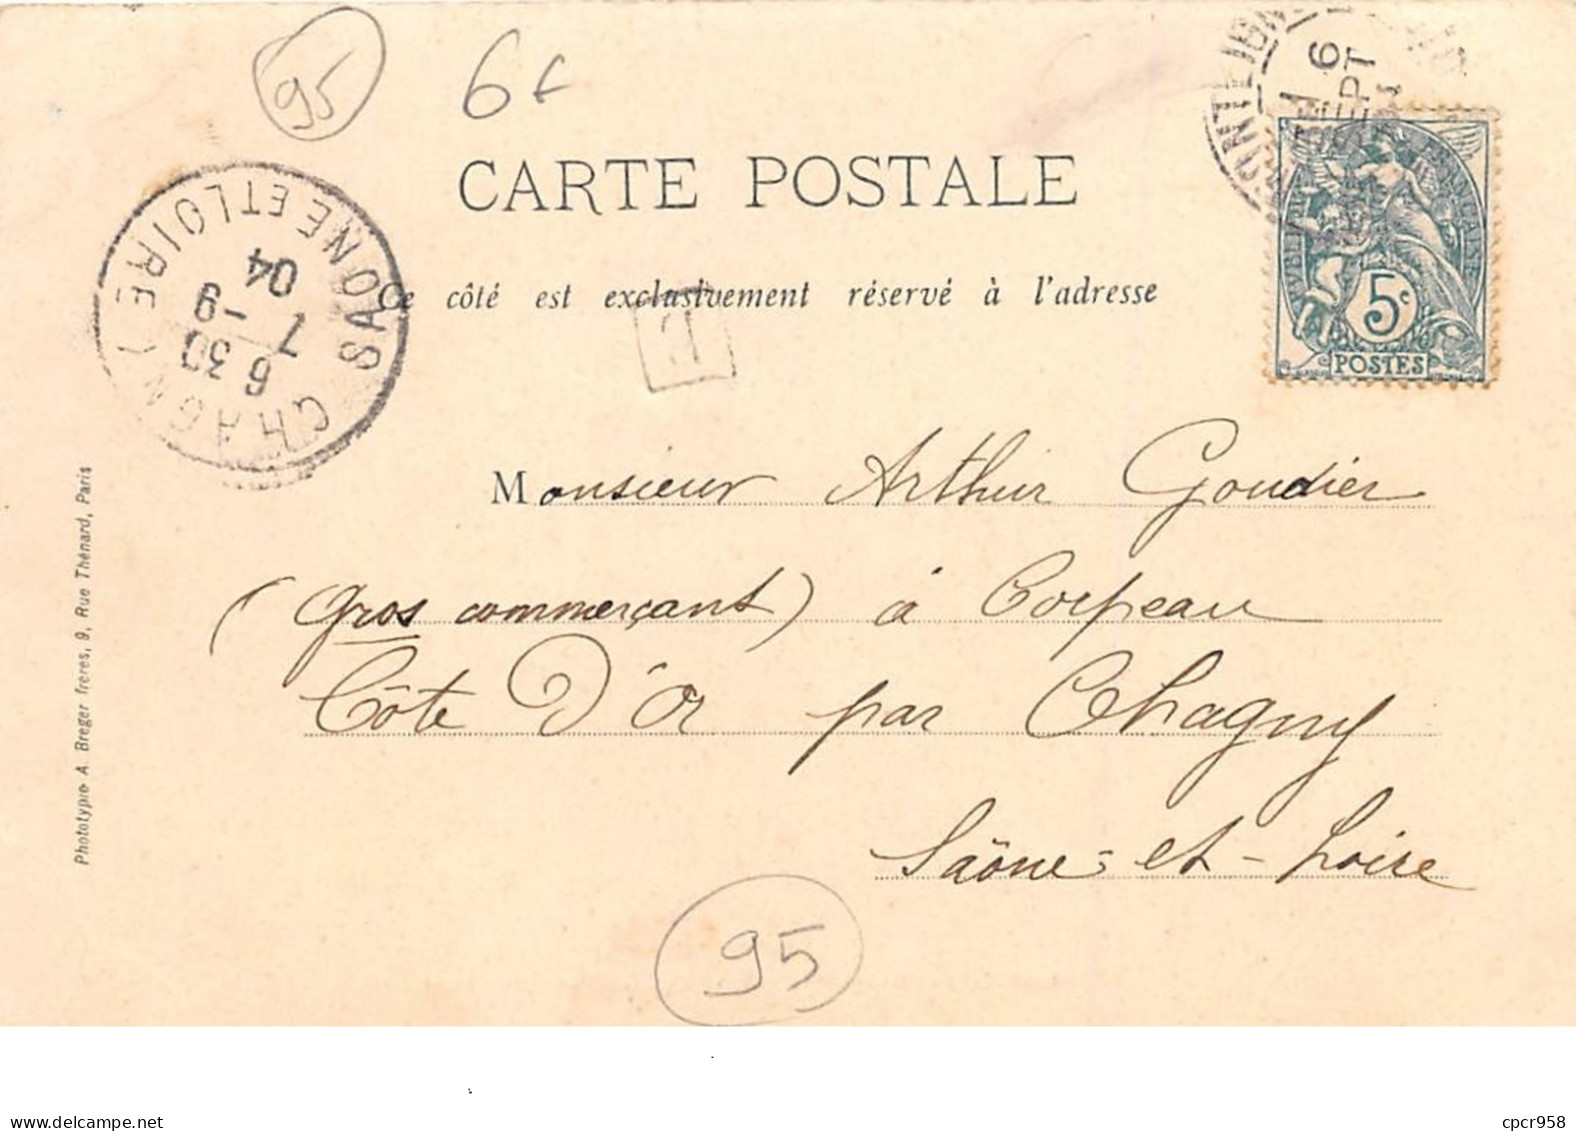 95
6f
CARTE POSTALE
Ce côté est exclusivement réservé à l'adresse
CHAGNY
SAONE ET LOIRE)
6 30
7 -9
04
6
SEPT
5c
POSTES
Monsieur Arthur Goudier
(Gros commerçant) à Corpeau
Côte D'Or par Chagny
Saône-et-Loire
95
Phototypie A. Breger freres, 9, Rue Thénard, Paris
cpcr958